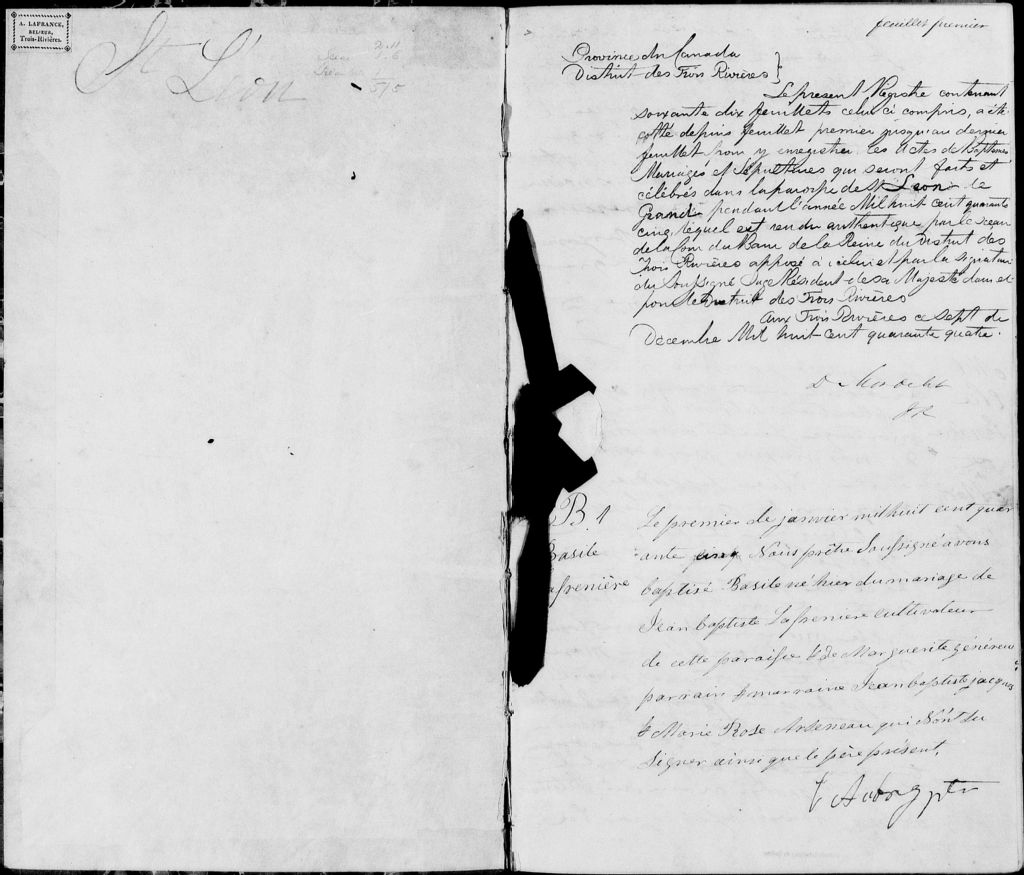 A. LAFRANCE,
RELIEUR,
Trois-Rivières.
St Léon
2.11
5/5
feuillet premier
Province du Canada
District des Trois Rivières }
Le present Registre contenant
soixante dix feuillets celui ci compris, a été
cotté depuis feuillet premier jusqu'au dernier
feuillet pour y enregistrer les Actes de Baptêmes
Mariages et Sépultures qui seront faits et
célébrés dans la paroisse de St Leon le
Grand pendant l'année Mil huit cent quarante
cinq, lequel est rendu authentique par le sceau
de la Cour du Banc de la Reine du District des
Trois Rivières apposé à icelui et par la signature
du Soussigné Juge Résident de sa Majesté dans et
pour le District des Trois Rivières
Aux Trois Rivières ce sept de
Décembre Mil huit cent quarante quatre.
B. 1
Basile
afrenière
Le premier de janvier mil huit cent quar
ante cinq Nous prêtre Soussigné avons
baptisé Basile né hier du mariage de
Jean baptiste Lafreniere cultivateur
de cette paroisse & de Marguerite généreux
parrain & marraine Jean baptiste jacques
& Marie Rose Arseneau qui n'ont su
signer ainsi que le père présent.